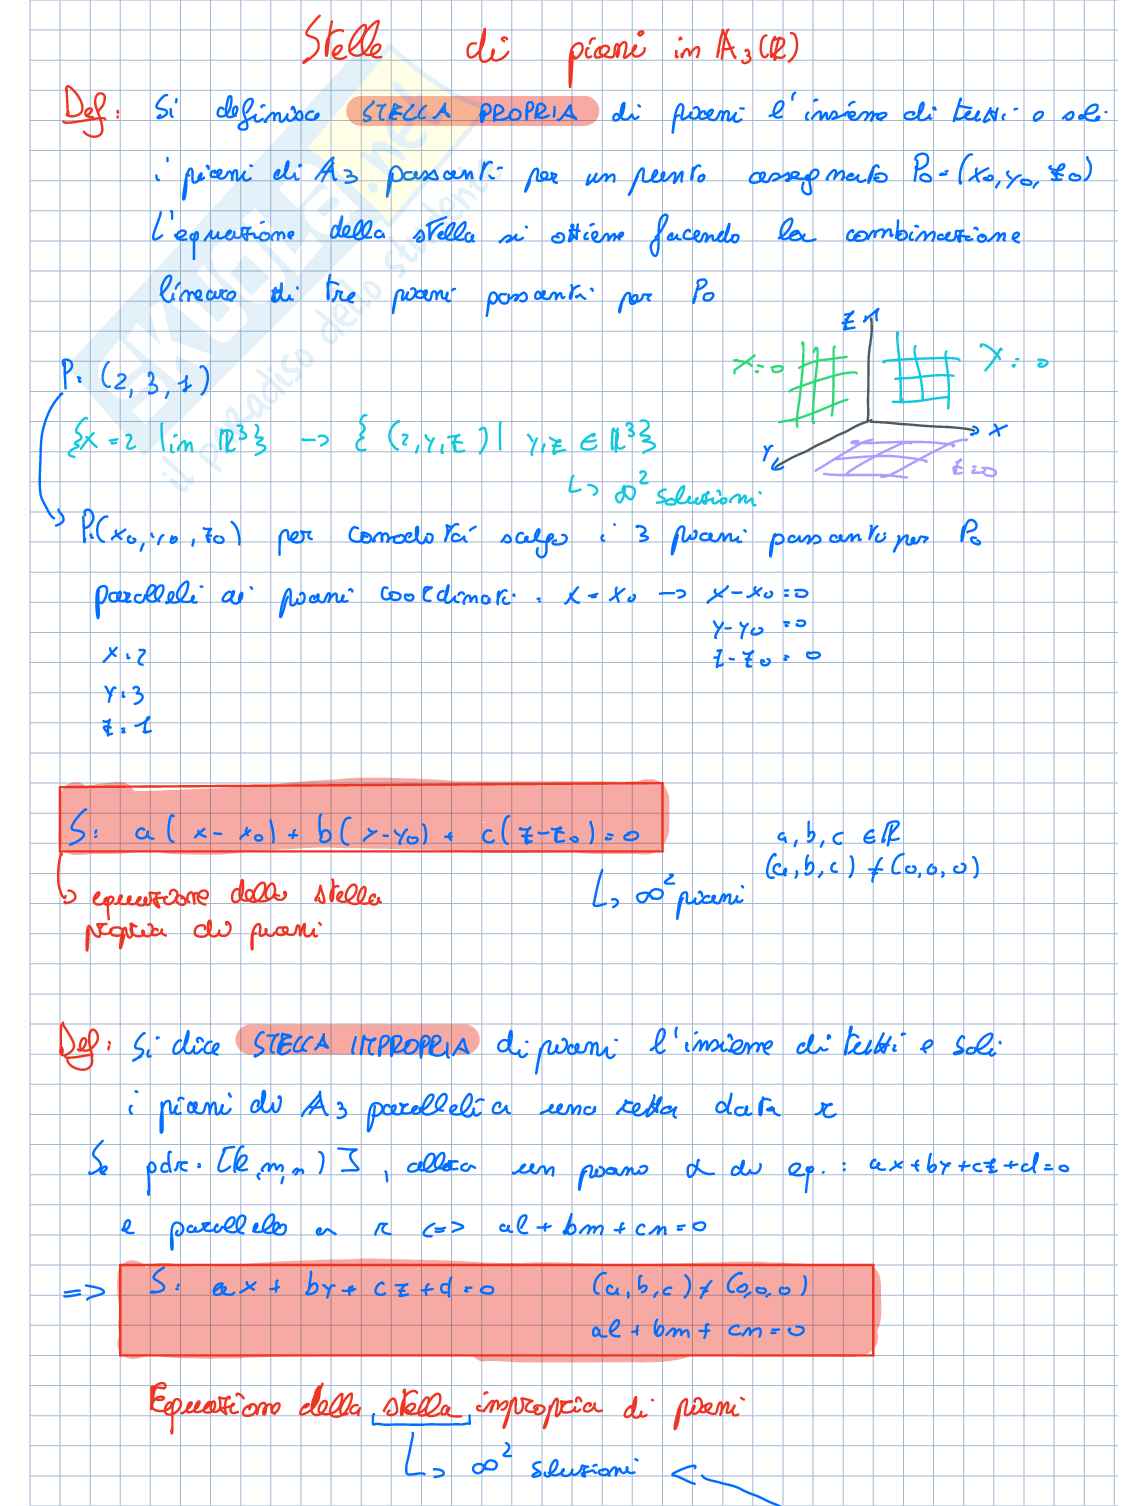 Stelle di piani in A3(R)
Def: Si definisce STELLA PROPRIA di piani l'insieme di tutti e soli
i piani di A3 passanti per un punto assegnato P0=(x0,y0,z0)
L'equazione della stella si ottiene facendo la combinazione
lineare di tre piani passanti per P0
Z
X=0
Y=0
X
Y
Z=0
P=(2,3,1)
{X=2 |in R³} -> {(2,Y,Z)| Y,Z ∈ R³}
↳ ∞² soluzioni
P(x0,y0,z0) per comodità scelgo i 3 piani passanti per P0
paralleli ai piani coordinati. X=X0 -> X-X0=0
Y-Y0=0
Z-Z0=0
X=2
Y=3
Z=1
S: a(x-x0)+b(y-y0)+c(z-z0)=0
a,b,c ∈ R
(a,b,c) ≠ (0,0,0)
↳ equazione della stella
propria di piani
↳ ∞² piani
Def: Si dice STELLA IMPROPRIA di piani l'insieme di tutti e soli
i piani di A3 paralleli a una retta data r
Se pdr=[(l,m,n)], allora un piano α di eq.: ax+by+cz+d=0
è parallelo a r <=> al+bm+cn=0
=> S: ax+by+cz+d=0 (a,b,c) ≠ (0,0,0)
al+bm+cn=0
Equazione della stella impropria di piani
↳ ∞² soluzioni <-
SKUOLA.net
il paradiso dello studente